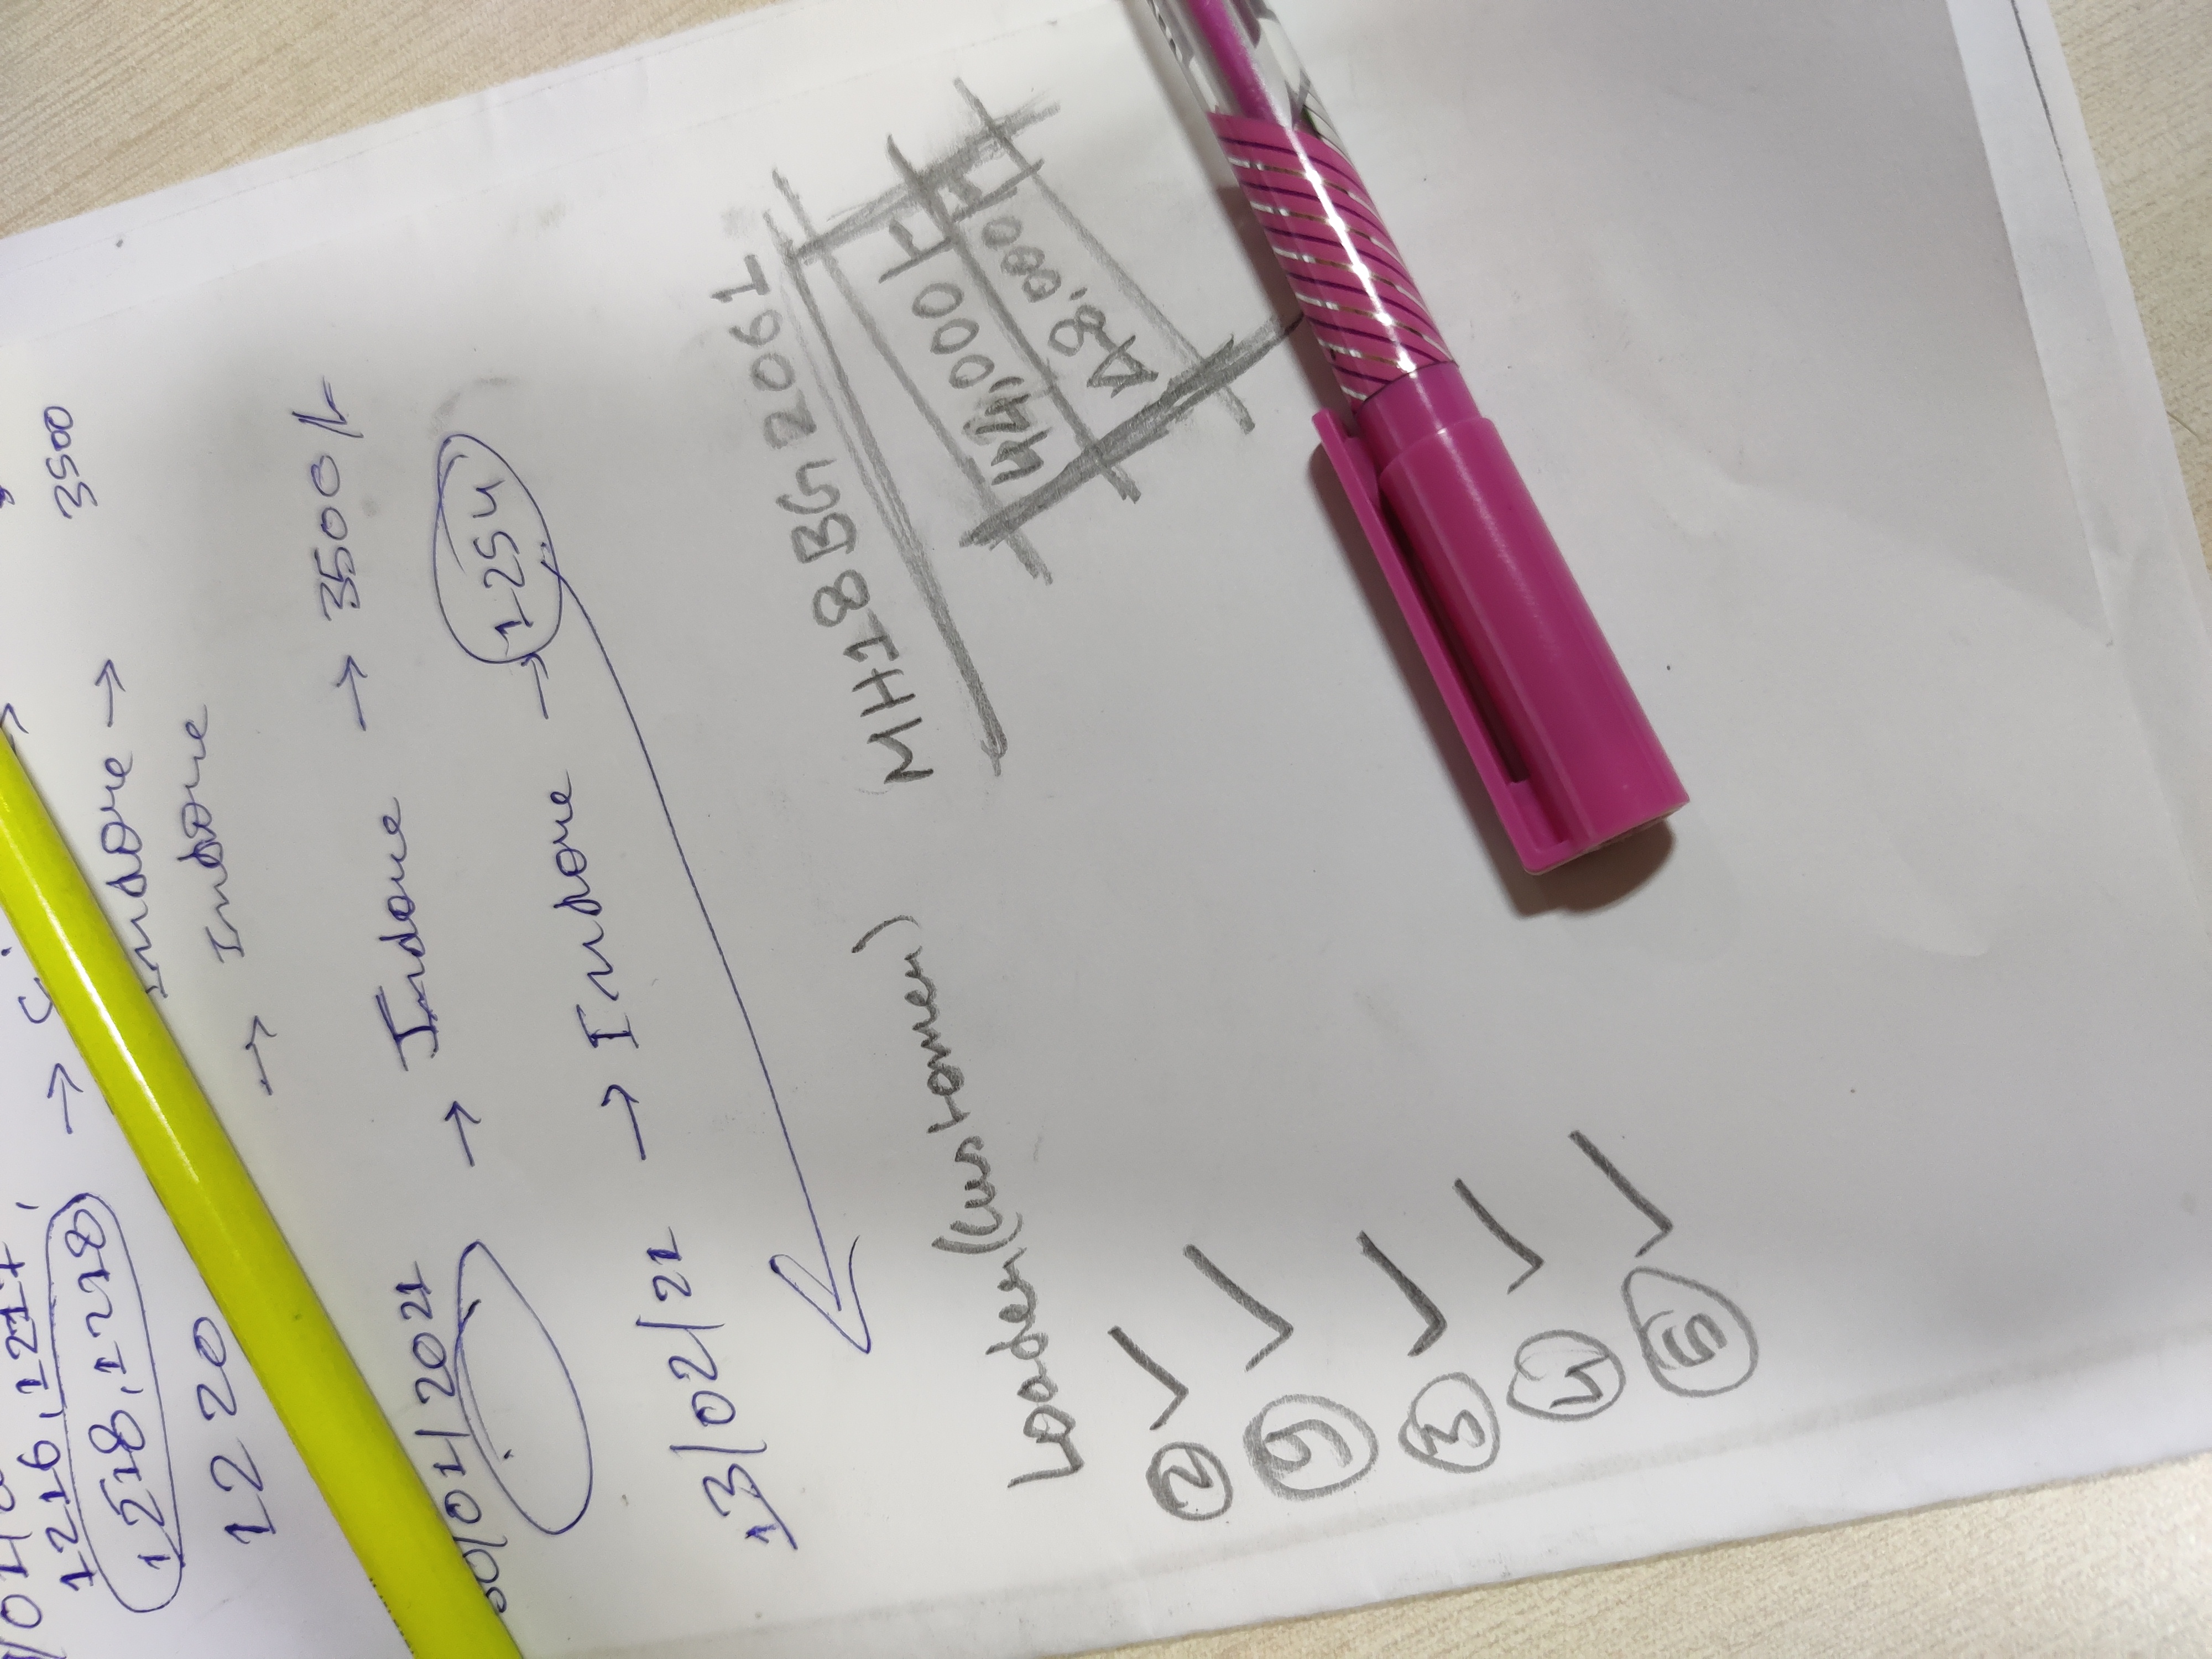 3500
1216, 1217,
1218, 1218
Indore →
1220 → Indore
→ 3500/-
/04/2021 → Indore
13/02/21 → Indore → 1254
Loader (customer) MH18BG2061
44,000
48,000
2 ✓
5 ✓
3 ✓
4 ✓
5 ✓